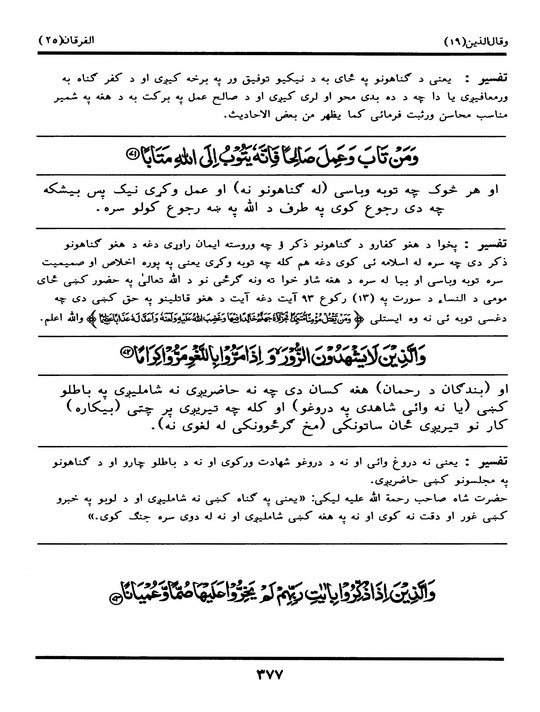 وقال الذین (۱۹)
الفرقان (۲۵)
تفسیر : یعنی د ګناهونو په ځای به د نیکیو توفیق ور په برخه کیږی او د کفر ګناه به
ورمعافیږی یا دا چه د ده بدی محو او لری کیږی او د صالح عمل په برکت به د هغه په شمیر
مناسب محاسن ورثبت فرمائی کما یظهر من بعض الاحادیث.
وَمَنْ تَابَ وَعَمِلَ صَالِحًا فَاِنَّهٗ یَتُوْبُ اِلَی اللهِ مَتَابًا ﴿۷۱﴾
او هر څوک چه توبه وباسی (له ګناهونو نه) او عمل وکړی نیک پس بیشکه
چه دی رجوع کوی په طرف د الله په ښه رجوع کولو سره .
تفسیر : پخوا د هغو کفارو د ګناهونو ذکر ؤ چه وروسته ایمان راوړی دغه د هغو ګناهونو
ذکر دی چه سره له اسلامه ئی کوی دغه هم کله چه توبه وکړی یعنی په پوره اخلاص او صمیمیت
سره توبه وباسی او بیا له سره د هغه شاو خوا ته ونه ګرځی نو د الله تعالیٰ په حضور کښی ځای
مومی د النساء د سورت په (۱۳) رکوع ۹۳ آیت دغه آیت د هغو قاتلینو په حق کښی دی چه
دغسی توبه ئی نه وه ایستلی ﴿ وَمَنْ یَّقْتُلْ مُؤْمِنًا مُّتَعَمِّدًا فَجَزَآؤُهٗ جَهَنَّمُ خَالِدًا فِیْهَا وَغَضِبَ اللهُ عَلَیْهِ وَلَعَنَهٗ وَاَعَدَّ لَهٗ عَذَابًا عَظِیْمًا ﴾ والله اعلم.
وَالَّذِیْنَ لَا یَشْهَدُوْنَ الزُّوْرَ ۙ وَ اِذَا مَرُّوْا بِاللَّغْوِ مَرُّوْا کِرَامًا ﴿۷۲﴾
او (بندګان د رحمان) هغه کسان دی چه نه حاضریږی نه شاملیږی په باطلو
کښی (یا نه وائی شاهدی په دروغو) او کله چه تیریږی پر چتی (بیکاره)
کار نو تیریږی ځان ساتونکی (مخ ګرځوونکی له لغوی نه).
تفسیر : یعنی نه دروغ وائی او نه د دروغو شهادت ورکوی او نه د باطلو چارو او د ګناهونو
په مجلسونو کښی حاضریږی.
حضرت شاه صاحب رحمة الله علیه لیکی: «یعنی په ګناه کښی نه شاملیږی او د لوبو په خبرو
کښی غور او دقت نه کوی او نه په هغه کښی شاملیږی او نه له دوی سره جنګ کوی.»
وَالَّذِیْنَ اِذَا ذُکِّرُوْا بِاٰیٰتِ رَبِّهِمْ لَمْ یَخِرُّوْا عَلَیْهَا صُمًّا وَّعُمْیَانًا ﴿۷۳﴾
۳۷۷